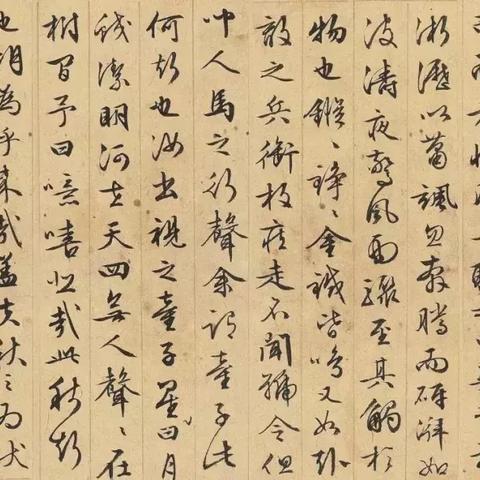 淅瀝以蕭颯忽奔騰而砰湃如
波濤夜驚風雨驟至其觸於
物也鏦〻錚〻金鐵皆鳴又如赴
敵之兵銜枚疾走不聞號令但
聞人馬之行聲余謂童子此
何聲也汝出視之童子星曰月
皎潔明河在天四無人聲〻在
樹間予曰噫嘻悲哉此秋聲
也胡為乎來哉蓋夫秋之為狀